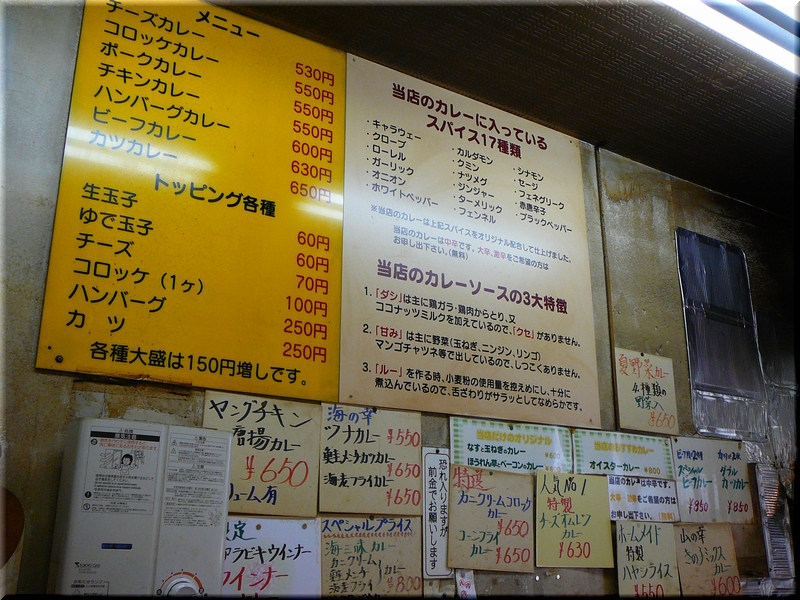 メニュー
チーズカレー 530円
コロッケカレー 550円
ポークカレー 550円
チキンカレー 550円
ハンバーグカレー 600円
ビーフカレー 630円
カツカレー 650円
トッピング各種
生玉子 60円
ゆで玉子 60円
チーズ 70円
コロッケ（1ヶ） 100円
ハンバーグ 250円
カ　ツ 250円
各種大盛は150円増しです。
当店のカレーに入っている
スパイス17種類
・キャラウェー
・クローブ
・ローレル
・ガーリック
・オニオン
・ホワイトペッパー
・カルダモン
・クミン
・ナツメグ
・ジンジャー
・ターメリック
・フェンネル
・シナモン
・セージ
・フェネグリーク
・赤唐辛子
・ブラックペッパー
※当店のカレーは上記スパイスをオリジナル配合して仕上げました。
当店のカレーは中辛です。大辛、激辛をご希望の方は
お申し出下さい。(無料)
当店のカレーソースの3大特徴
1.「ダシ」は主に鶏ガラ・鶏肉からとり、又
ココナッツミルクを加えているので、「クセ」がありません。
2.「甘み」は主に野菜(玉ねぎ、ニンジン、リンゴ)
マンゴチャツネ等で出しているので、しつこくありません。
3.「ルー」を作る時、小麦粉の使用量を控えめにし、十分に
煮込んでいるので、舌ざわりがサラッとしてなめらかです。
夏野菜カレー
4種類の
野菜入
¥650
ヤングチキン
唐揚カレー
¥650
ューム有
海の幸
ツナカレー ¥550
鮭メンチカツカレー ¥650
海産フライカレー ¥650
恐れ入りますが
前金でお願いします
当店だけのオリジナル
なすと玉ねぎのカレー
ほうれん草とベーコンのカレー
¥600
当店のおすすめカレー
オイスターカレー ¥800
当店のカレーは中辛です。
大辛・激辛をご希望の方は
お申し出下さい。(無料)
特選
カニクリームコロッケ
カレー ¥650
コーンフライ
カレー ¥650
人気No1
特製
チーズオムレツ
カレー
¥630
スペシャル
ビーフカレー
¥850
ダブル
カツカレー
¥850
アラビキウインナー
ウインナー
スペシャルプライス
海の三昧カレー
カニクリーム
鮭メンチ
海産フライ
¥800
ホームメイド
特製
ハヤシライス
¥550
山の幸
きのこミックス
カレー
¥600